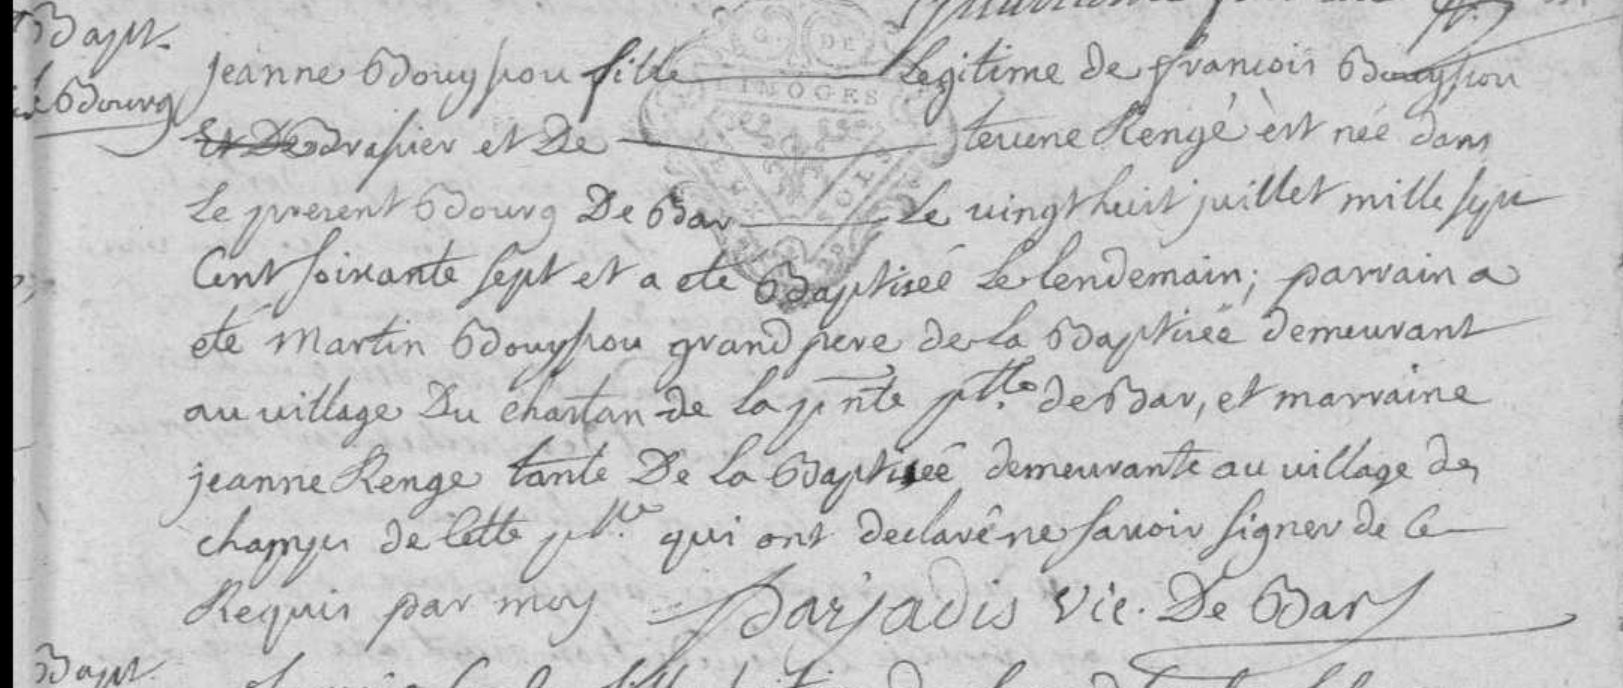 Bapt.
Bourg
jeanne Bouyssou fille legitime de françois Bouyssou
Et De Brasier et De teuene Rengé èst née dans
Le present Bourg De Bar Le vingt huit juillet mille sept
Cent soixante sept et a eté Baptiséé Le lendemain; parrain a
eté Martin Bouyssou grand pere de La Baptisée demeurant
au village Du chastan de la pnte psse de Bar, et marraine
jeanne Renge tante De La Baptisée demeurante au village des
champs de Cette psse qui ont declaré ne savoir signer de Ce
Requis par moy Parjadis vic. De Bar
Bapt.
G. DE
LIMOGES